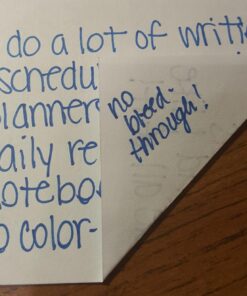 do a lot of writi
schedu
lanners
aily re
noteboo
o color-
no
bleed-
through!